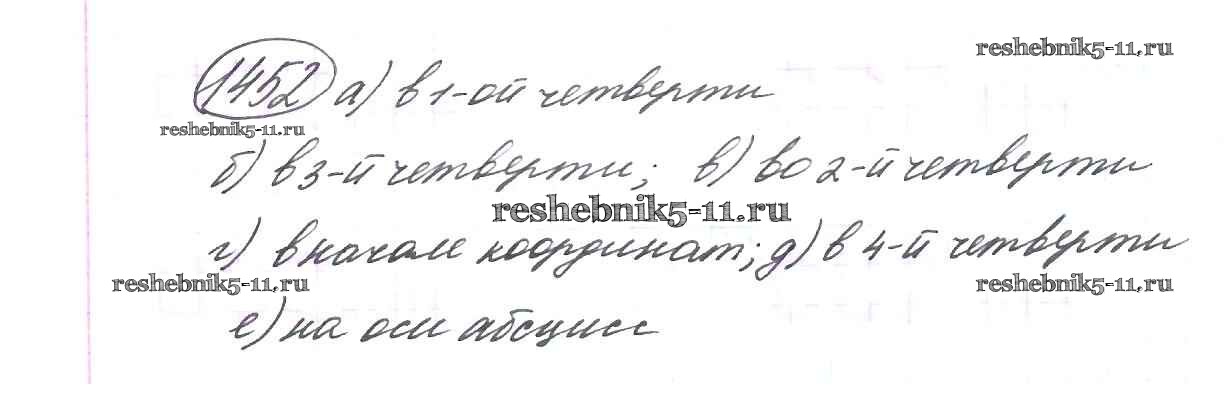 reshebnik5-11.ru
1452 а) в 1-ой четверти
reshebnik5-11.ru
б) в 3-й четверти; в) во 2-й четверти
reshebnik5-11.ru
г) в начале координат; д) в 4-й четверти
reshebnik5-11.ru reshebnik5-11.ru
е) на оси абсцисс